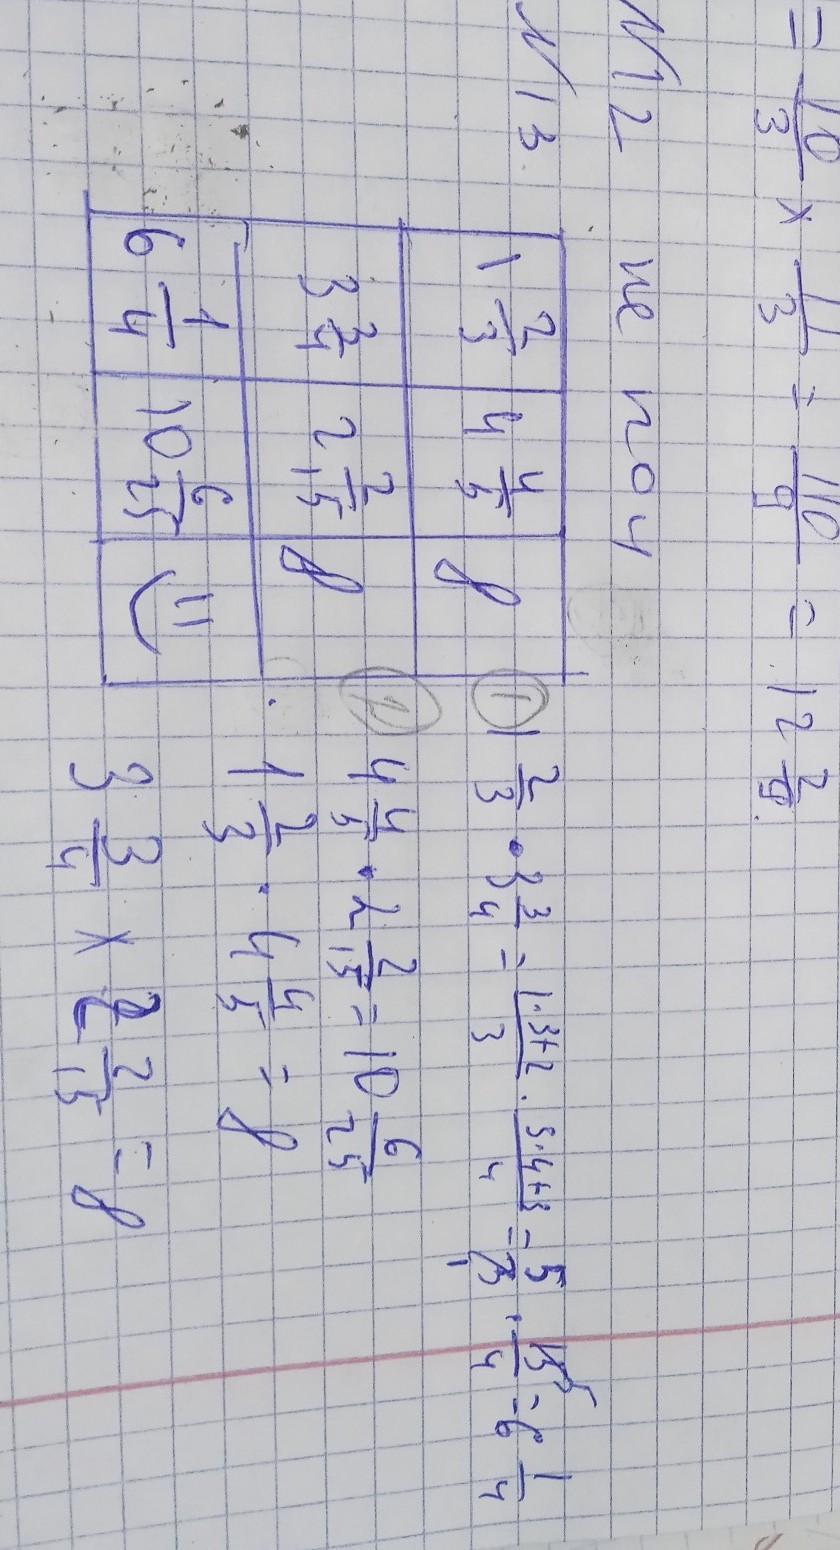 = 10/3 × 11/3 = 110/9 = 12 2/9.
N12 не поч
N13
1 2/3 4 4/5 8
3 3/4 2 2/15 8
6 1/4 10 6/25
① 1 2/3 · 3 3/4 = 1·3+2/3 · 3·4+3/4 = 5/3 · 15/4 = 6 1/4
② 4 4/5 · 2 2/15 = 10 6/25
1 2/3 · 4 4/5 = 8
3 3/4 × 2 2/15 = 8